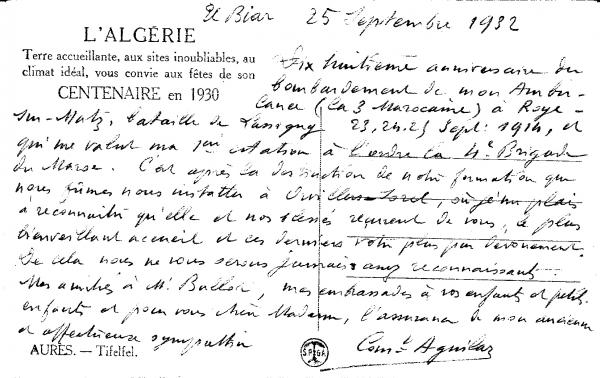 El Biar 25 Septembre 1932
L'ALGÉRIE
Terre accueillante, aux sites inoubliables, au
climat idéal, vous convie aux fêtes de son
CENTENAIRE en 1930
Dix huitième anniversaire du
bombardement de mon Ambu-
lance (la 3 Marocaine) à Roye-
sur-Matz, bataille de Lassigny 23, 24, 25 Sept: 1914, et
qui me valut ma 1ère citation à l'ordre la 4e Brigade
du Maroc. C'est après la destruction de notre formation que
nous fûmes nous installer à Orvillers-Sorel, où je me plais
à reconnaître qu'elle et nos blessés reçurent de vous, le plus
bienveillant accueil et ces derniers votre plus pur dévouement.
De cela nous ne vous serons jamais assez reconnaissants.
Mes amitiés à Mr , mes embrassades à vos enfants et petits
enfants et pour vous chère Madame, l'assurance de mon ancienne
et affectueuse sympathie
Comt Aguilar
AURÈS. — Tifelfel.